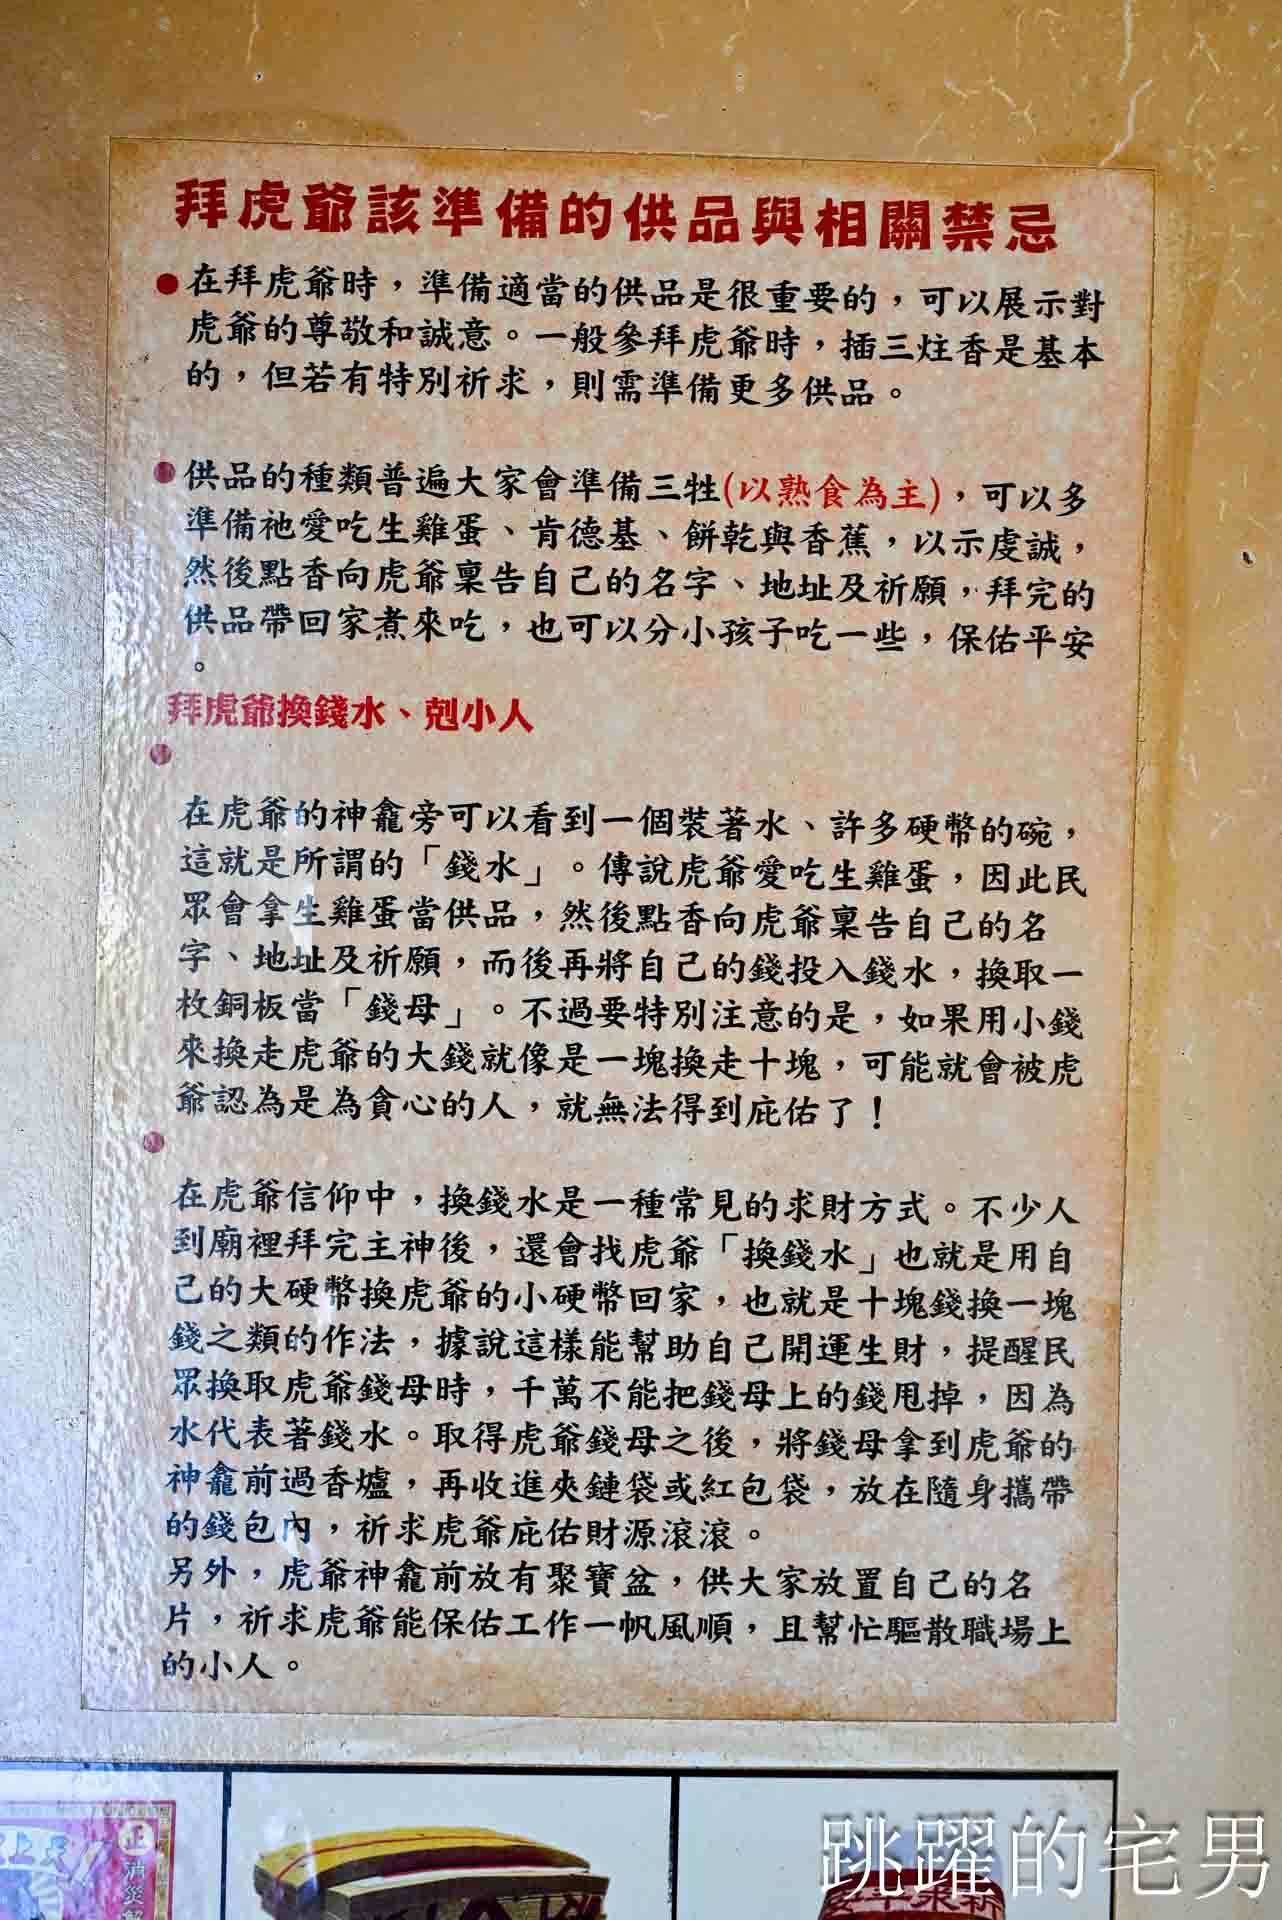 拜虎爺該準備的供品與相關禁忌
在拜虎爺時，準備適當的供品是很重要的，可以展示對
虎爺的尊敬和誠意。一般參拜虎爺時，插三炷香是基本
的，但若有特別祈求，則需準備更多供品。
供品的種類普遍大家會準備三牲(以熟食為主)，可以多
準備祂愛吃生雞蛋、肯德基、餅乾與香蕉，以示虔誠，
然後點香向虎爺稟告自己的名字、地址及祈願，拜完的
供品帶回家煮來吃，也可以分小孩子吃一些，保佑平安
。
拜虎爺換錢水、剋小人
在虎爺的神龕旁可以看到一個裝著水、許多硬幣的碗，
這就是所謂的「錢水」。傳說虎爺愛吃生雞蛋，因此民
眾會拿生雞蛋當供品，然後點香向虎爺稟告自己的名
字、地址及祈願，而後再將自己的錢投入錢水，換取一
枚銅板當「錢母」。不過要特別注意的是，如果用小錢
來換走虎爺的大錢就像是一塊換走十塊，可能就會被虎
爺認為是為貪心的人，就無法得到庇佑了！
在虎爺信仰中，換錢水是一種常見的求財方式。不少人
到廟裡拜完主神後，還會找虎爺「換錢水」也就是用自
己的大硬幣換虎爺的小硬幣回家，也就是十塊錢換一塊
錢之類的作法，據說這樣能幫助自己開運生財，提醒民
眾換取虎爺錢母時，千萬不能把錢母上的錢甩掉，因為
水代表著錢水。取得虎爺錢母之後，將錢母拿到虎爺的
神龕前過香爐，再收進夾鏈袋或紅包袋，放在隨身攜帶
的錢包內，祈求虎爺庇佑財源滾滾。
另外，虎爺神龕前放有聚寶盆，供大家放置自己的名
片，祈求虎爺能保佑工作一帆風順，且幫忙驅散職場上
的小人。
正
跳躍的宅男